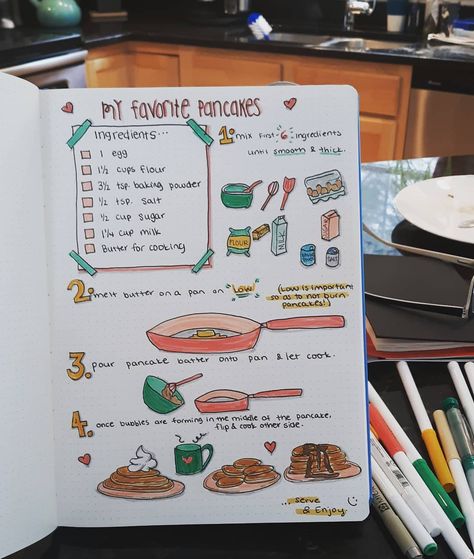 My Favorite Pancakes
Ingredients...
1 egg
1½ cups flour
3½ tsp. baking powder
½ tsp. salt
½ cup sugar
1¼ cup milk
Butter for cooking
1. mix first 6 ingredients
until smooth & thick.
FLOUR
MILK
SALT
2. melt butter on a pan on "Low"
(Low is important
so as to not burn
pancakes!)
3. pour pancake batter onto pan & let cook.
4. once bubbles are forming in the middle of the pancake,
flip & cook other side.
... serve
& Enjoy